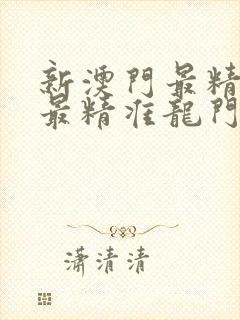 新澳門最精
最精准龍門
瀟清清